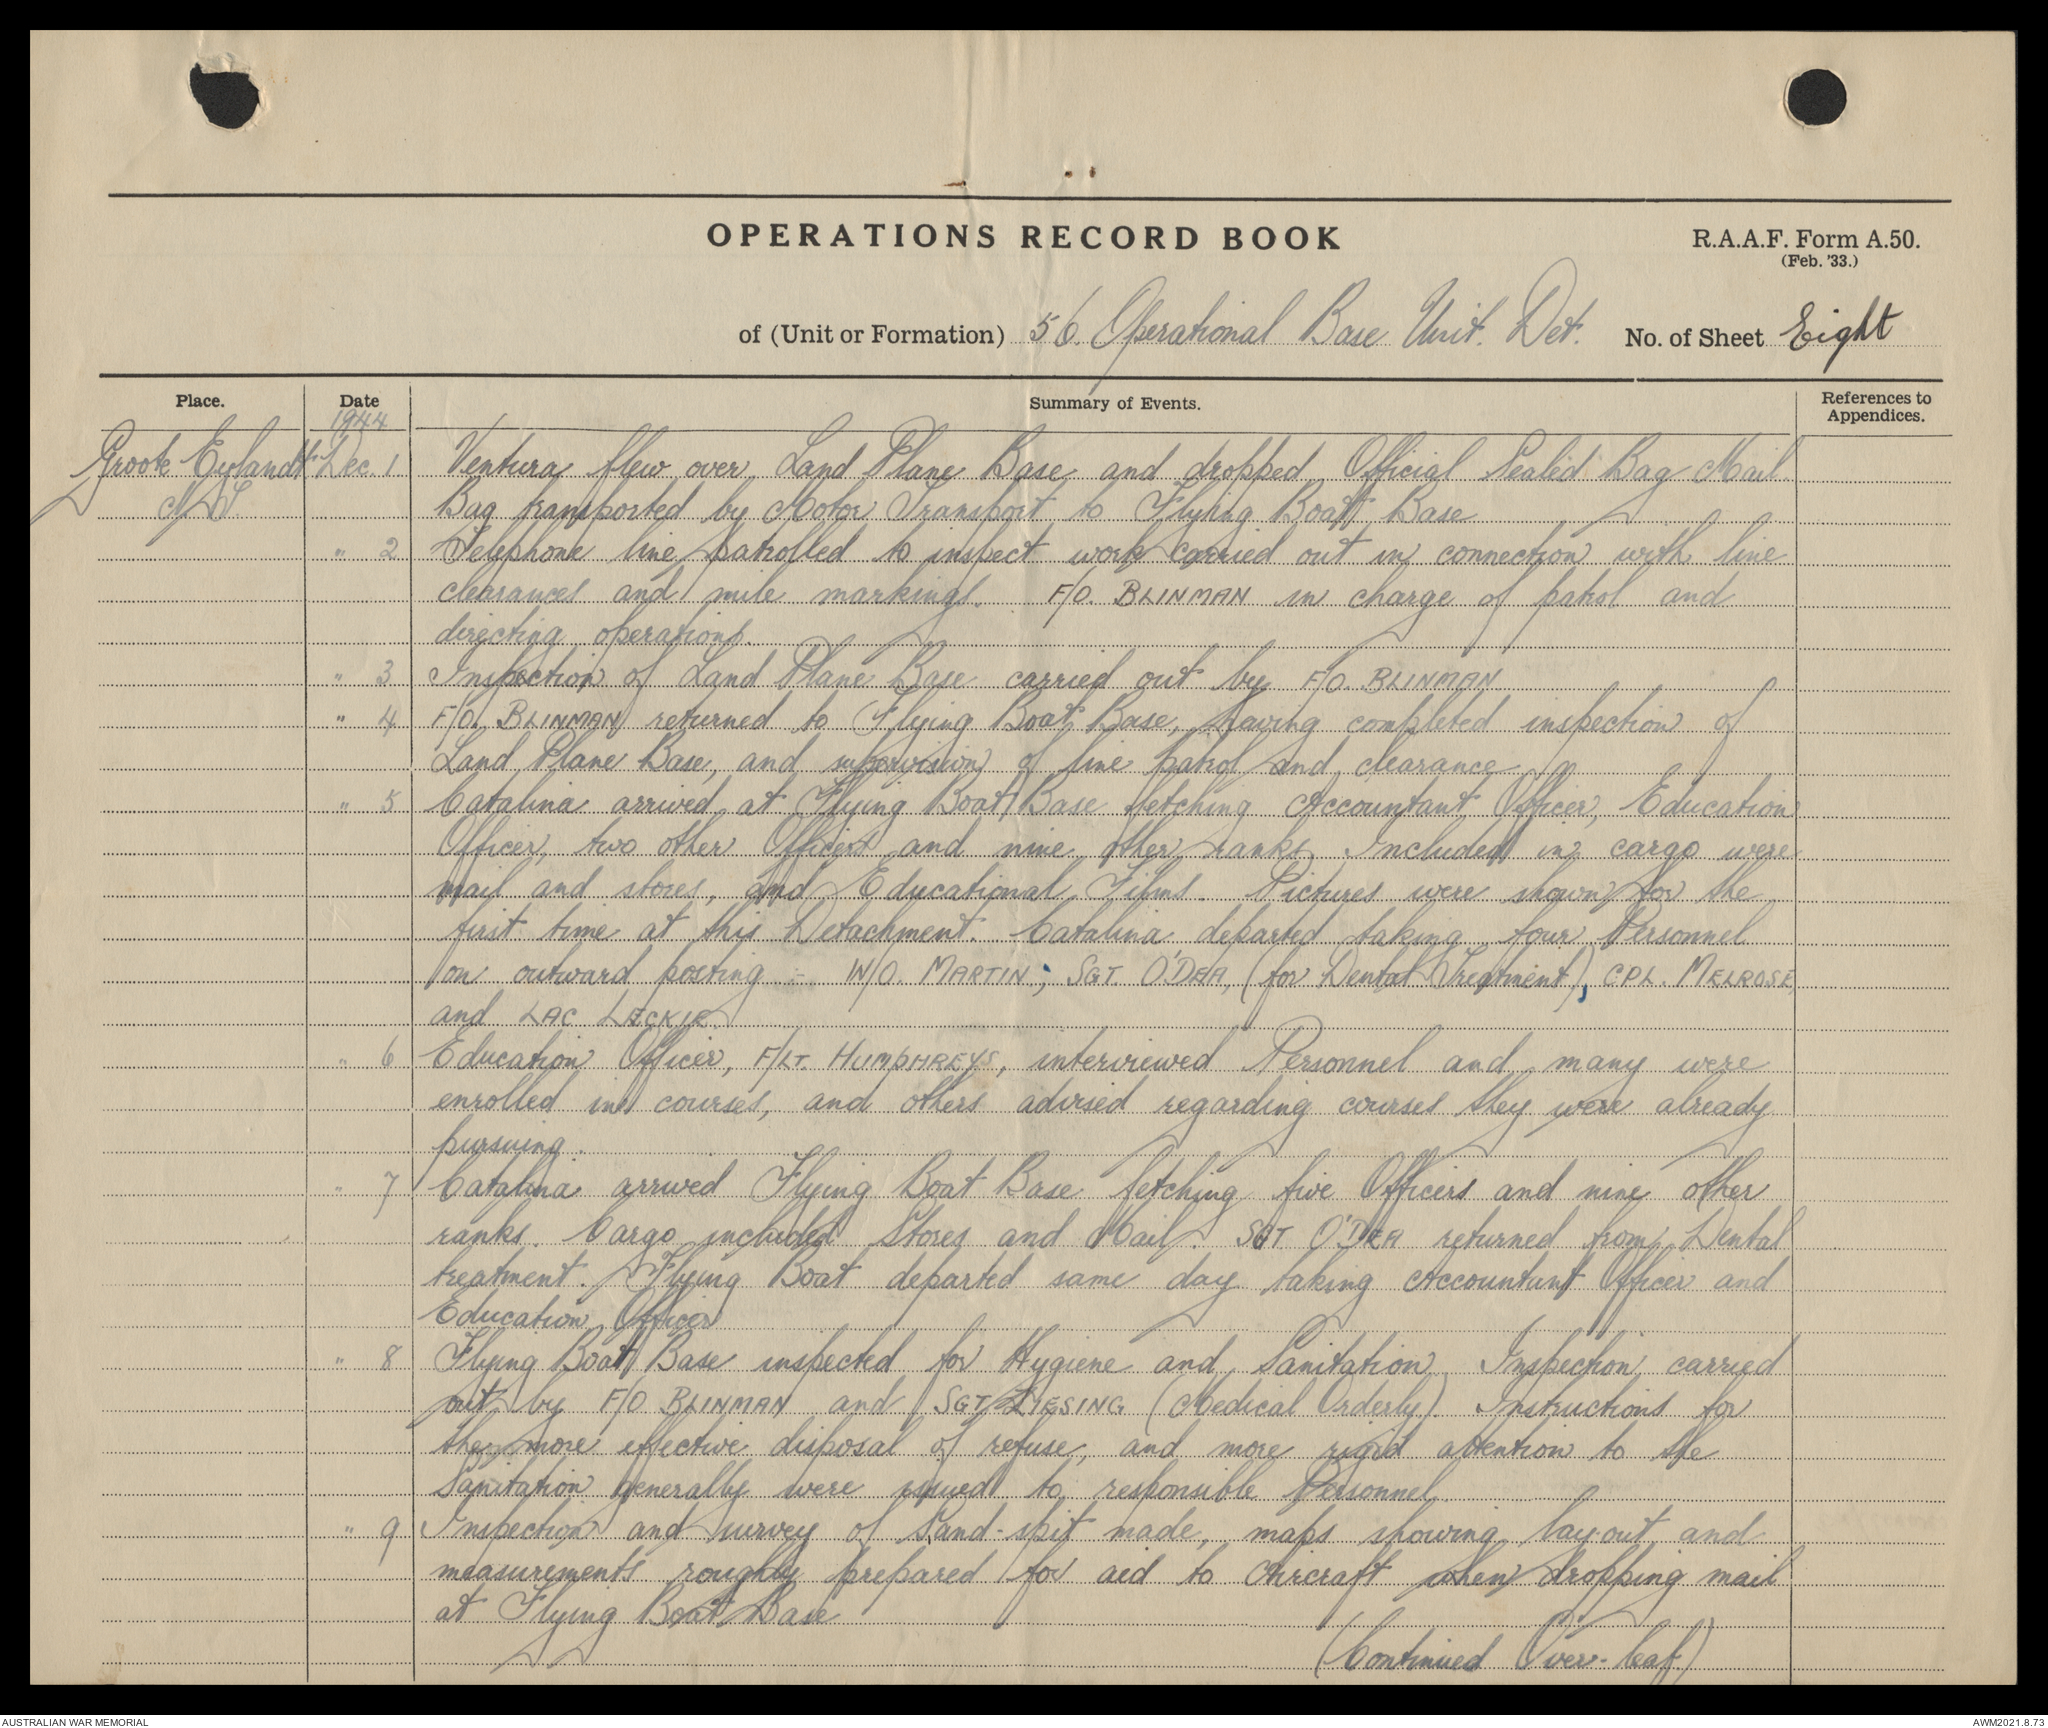 OPERATIONS RECORD BOOK
R.A.A.F. Form A.50.
(Feb. '33.)
of (Unit or Formation) 56. Operational Base Unit. Det. No. of Sheet Eight
Place. Date Summary of Events. References to Appendices.
1944
Groote Eylandt Dec. 1 Ventura flew over Land Plane Base and dropped Official Sealed Bag Mail.
N.T. Bag transported by Motor Transport to Flying Boat Base
" 2 Telephone line patrolled to inspect work carried out in connection with line
clearances and mile markings. F/O. BLINMAN in charge of patrol and
directing operations.
" 3 Inspection of Land Plane Base carried out by F/O. BLINMAN
" 4 F/O. BLINMAN returned to Flying Boat Base, having completed inspection of
Land Plane Base, and supervision of line patrol and clearance
" 5 Catalina arrived at Flying Boat Base fetching Accountant Officer, Education
Officer, two other Officers and nine other ranks. Included in cargo were
mail and stores, and Educational Films. Pictures were shown for the
first time at this Detachment. Catalina departed taking four Personnel
on outward posting :- W/O. MARTIN; SGT. O'DEA, (for Dental Treatment), CPL. MELROSE,
and LAC LECKIE.
" 6 Education Officer, F/LT. HUMPHREYS, interviewed Personnel and many were
enrolled in courses, and others advised regarding courses they were already
pursuing.
" 7 Catalina arrived Flying Boat Base fetching five Officers and nine other
ranks. Cargo included Stores and Mail. SGT O'DEA returned from Dental
treatment. Flying Boat departed same day taking Accountant Officer and
Education Officer
" 8 Flying Boat Base inspected for Hygiene and Sanitation. Inspection carried
out by F/O BLINMAN and SGT LIESING (Medical Orderly). Instructions for
the more effective disposal of refuse, and more rigid attention to the
Sanitation generally were issued to responsible Personnel.
" 9 Inspection and survey of Sand-spit made, maps showing lay-out and
measurements roughly prepared for aid to Aircraft when dropping mail
at Flying Boat Base
(Continued Over-leaf)
AUSTRALIAN WAR MEMORIAL
AWM2021.8.73